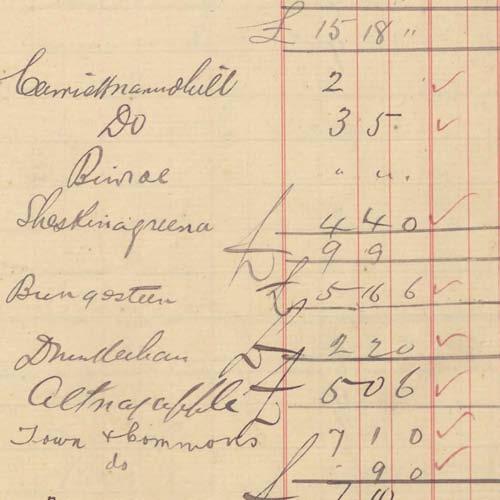 £ 15 18 "
Carricknamohill 2 "
Do 3 5 .
Binroe " " .
Sheskinagreena 4 4 0
£ 9 9
Bungosteen £ 5 16 6
£ 2 2 0
Altnagapple £ 5 0 6
Town & Commons 7 1 0
do . 9 0
£ 7 10